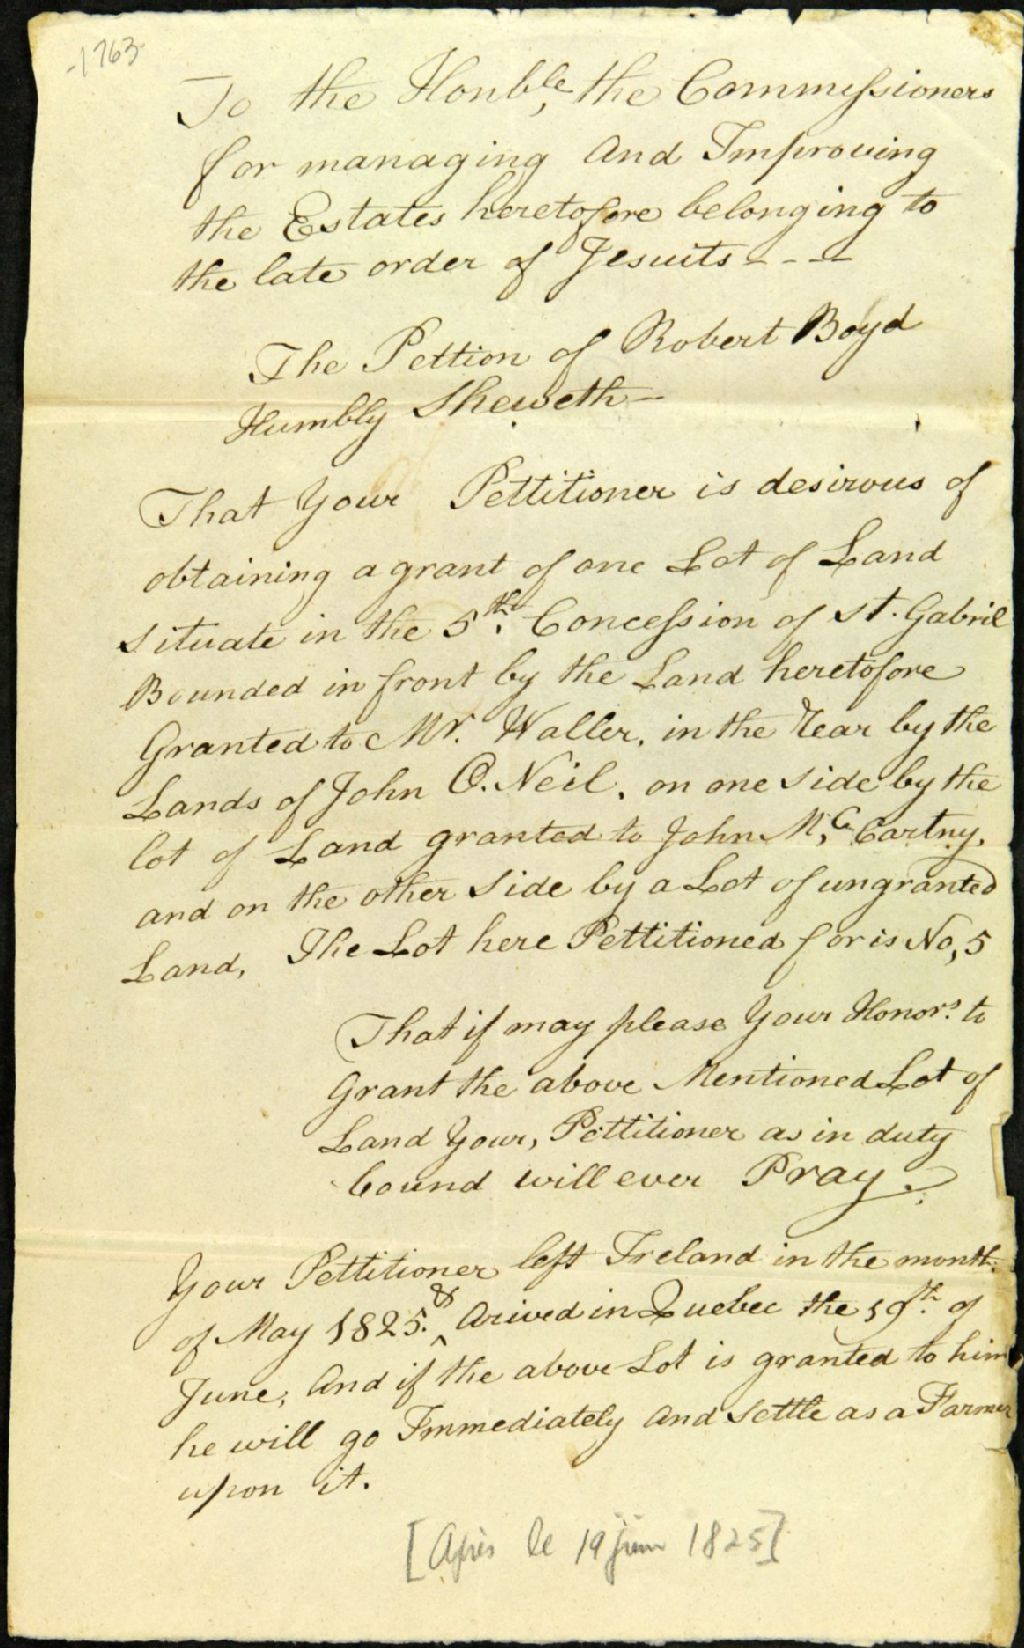 -1763-
To the Honble, the Commissioners
for managing And Improving
the Estates heretofore belonging to
the late order of Jesuits - - -
The Pettion of Robert Boyd
Humbly Sheweth -
That Your Pettitioner is desirous of
obtaining a grant of one Lot of Land
situate in the 5th. Concession of St. Gabril
Bounded in front by the Land heretofore
Granted to Mr. Waller, in the Rear by the
Lands of John O. Neil, on one side by the
lot of Land granted to John Mc, Cartny,
and on the other side by a Lot of ungranted
Land, The Lot here Pettitioned for is No, 5
That if may please Your Honors. to
Grant the above Mentioned Lot of
Land Your, Pettitioner as in duty
bound will ever Pray.
Your Pettitioner left Ireland in the month
of May 1825. & Arived in Quebec the 19th. of
June, And if the above Lot is granted to him
he will go Immediately and settle as a Farmer
upon it.
[Après le 19 juin 1825]